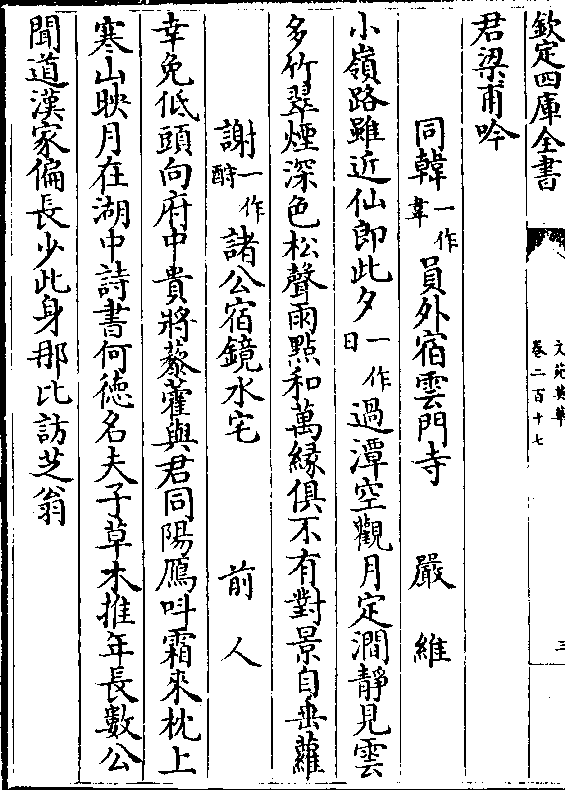 欽定四庫全書
文苑英華
卷二百十七
三
君梁甫吟
同韓一作韋員外宿雲門寺 嚴維
小嶺路雖近仙郎此夕一作日過潭空觀月定澗靜見雲
多竹翠煙深色松聲雨點和萬緣俱不有對景自垂蘿
謝一作酧諸公宿鏡水宅 前人
幸免低頭向府中貴將藜藿與君同陽鴈呌霜來枕上
寒山映月在湖中詩書何徳名夫子草木推年長數公
聞道漢家偏長少此身那比訪芝翁